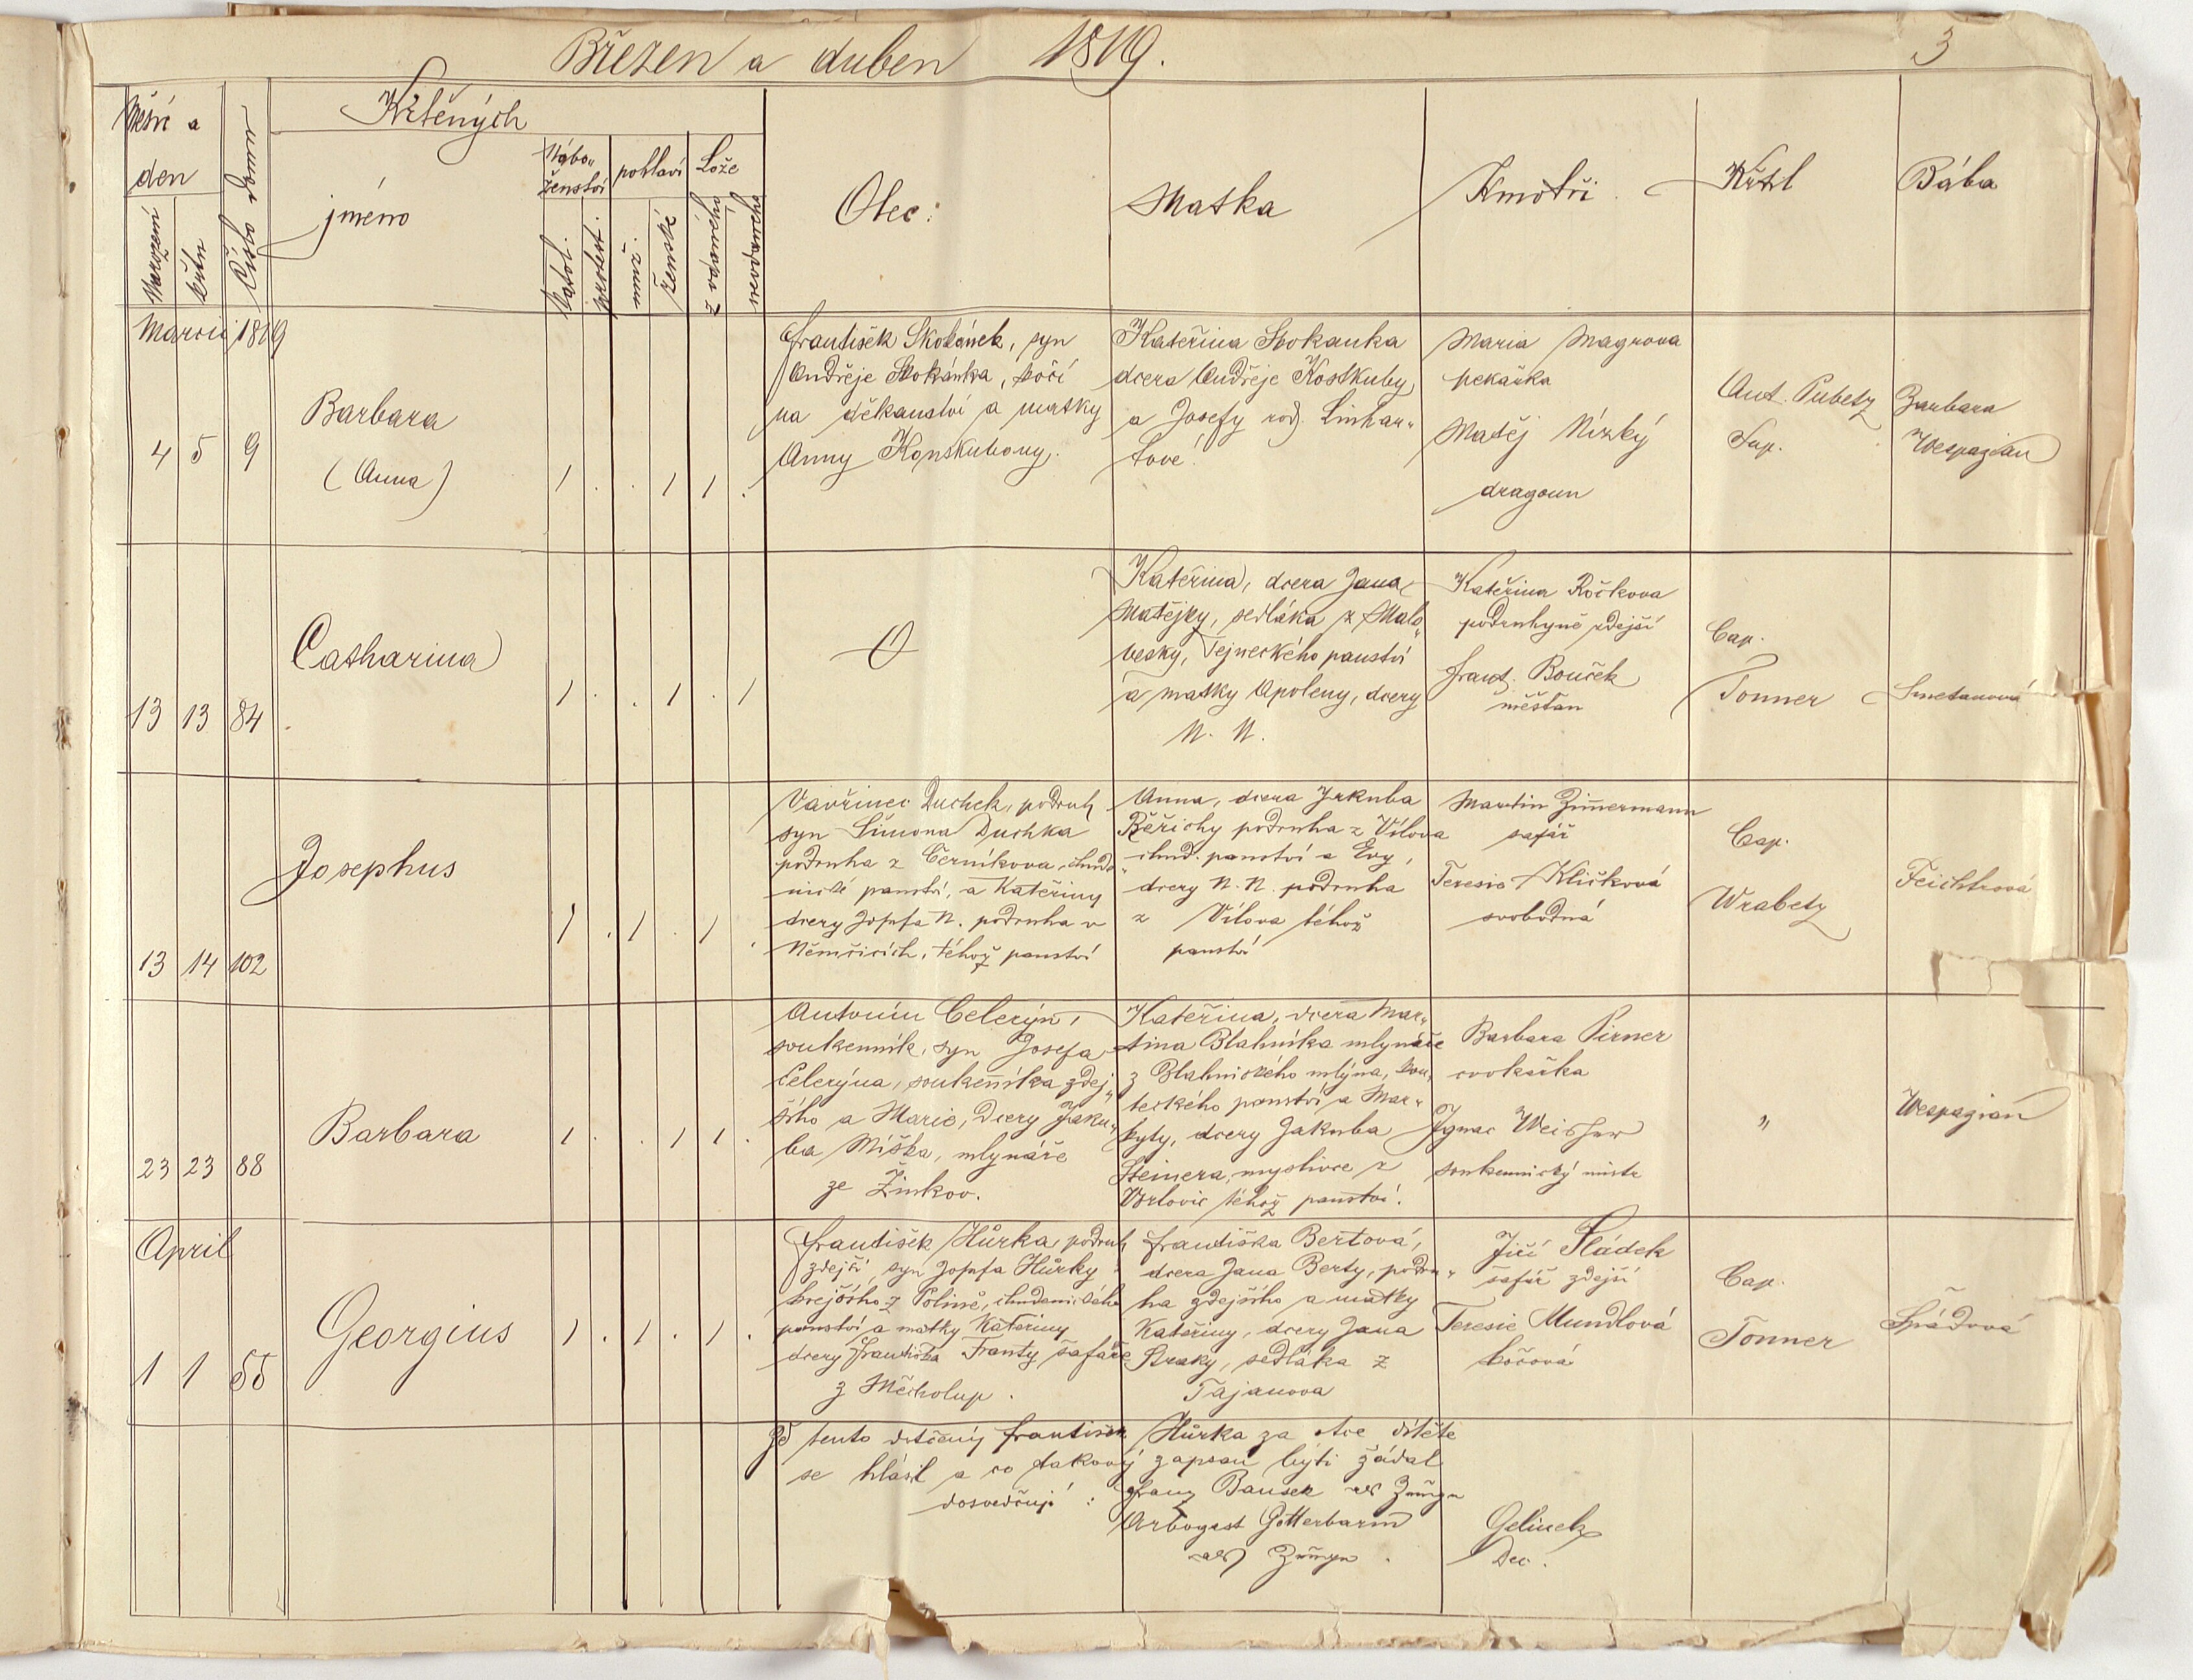 Březen a duben 1819.
3
Měsíc a
den
Narození
křtu
Číslo domu
Křtěných
jméno
Nábo„
ženství
katol.
protest.
pohlaví
muž.
ženské
Lože
z vdaného
nevdaného
Otec:
Matka
Kmotři
Křtil
Bába
Marcii 1819
4 5 9
Barbara
(Anna)
1 . . 1 1 .
František Skokánek, syn
Ondřeje Skokánka, kočí
na děkanství a matky
Anny Konskubovy.
Kateřina Skokanka
dcera Ondřeje Kostkuby
a Josefy roz. Linhar„
tové.
Maria Magrova
pekařka
Matěj Nízký
dragoun
Ant. Pubetz
Sup.
Barbara
Wespazian
13 13 84
Catharina
1 . . 1 . 1
O
Kateřina, dcera Jana
Matějky, sedláka z Malo„
vesky, Tejneckého panství
a matky Apoleny, dcery
N. N.
Kateřina Kočkova
podruhyně zdejší
Frant. Bouček
měšťan
Cap.
Tonner
Smetanová
13 14 102
Josephus
1 . 1 . 1 .
Vavřinec Duchek, podruh
syn Šimona Duchka
podruha z Černíkova, chude„
nické panství, a Kateřiny
dcery Josefa N. podruha v
Němčicích, téhož panství
Anna, dcera Jakuba
Běřichy podruha z Vílova
chud. panství a Evy,
dcery N. N. podruha
z Vílova téhož
panství
Martin Zimermann
šafář
Teresie Kličková
svobodná
Cap.
Wrabetz
Feichtrová
23 23 88
Barbara
1 . . 1 1 .
Antonín Celerýn,
soukenník, syn Josefa
Celerýna, soukenníka zdej„
šího a Marie, dcery Jaku„
ba Míška, mlynáře
ze Žinkov.
Kateřina, dcera Mar„
tina Blahníka mlynáře
z Blahnického mlýna, kou„
teckého panství a Mar„
kyty, dcery Jakuba
Steinera, myslivce z
téhož panství.
Barbara Pirner
cvokařka
Ignac
soukennický mistr
„
Wespazian
April
1 1 55
Georgius
1 . 1 . 1 .
František Hůrka, podruh
zdejší, syn Josefa Hůrky
krejčího z Polině, chudenického
panství a matky Kateřiny
dcery Františka Franty šafáře
z Měcholup.
Františka Bertová,
dcera Jana Berty, podru„
ha zdejšího a matky
Kateřiny, dcery Jana
Straky, sedláka z
Tajanova
Jiří Sládek
šafář zdejší
Teresie Mundlová
kočová
Cap.
Tonner
Špádová
Že tento dotčený František Hůrka za otce dítěte
se hlásil a co takový zapsán býti žádal
dosvědčují: Franz Bausek als Zeuge
Arbogast Götterbarm
als Zeuge.
Gelinek
Dec.